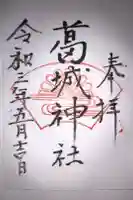 奉拝
葛城神社
令和三年五月吉日